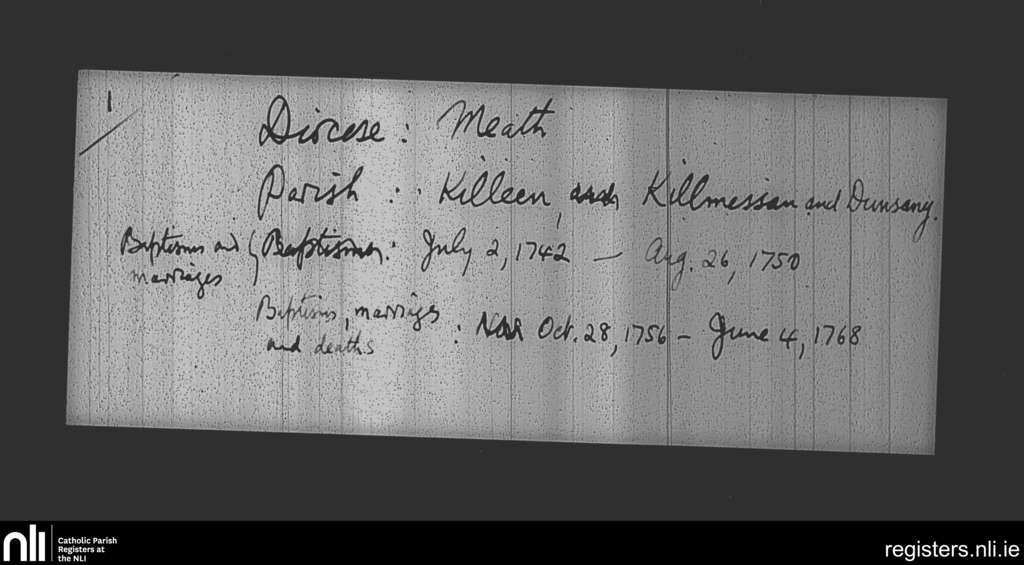 1
Diocese: Meath
Parish: Killeen, and Killmessan and Dunsany.
Baptisms and marriages { Baptisms: July 2, 1742 — Aug. 26, 1750
Baptisms, marriages and deaths : Nov Oct. 28, 1756 – June 4, 1768
nli
Catholic Parish
Registers at
the NLI
registers.nli.ie